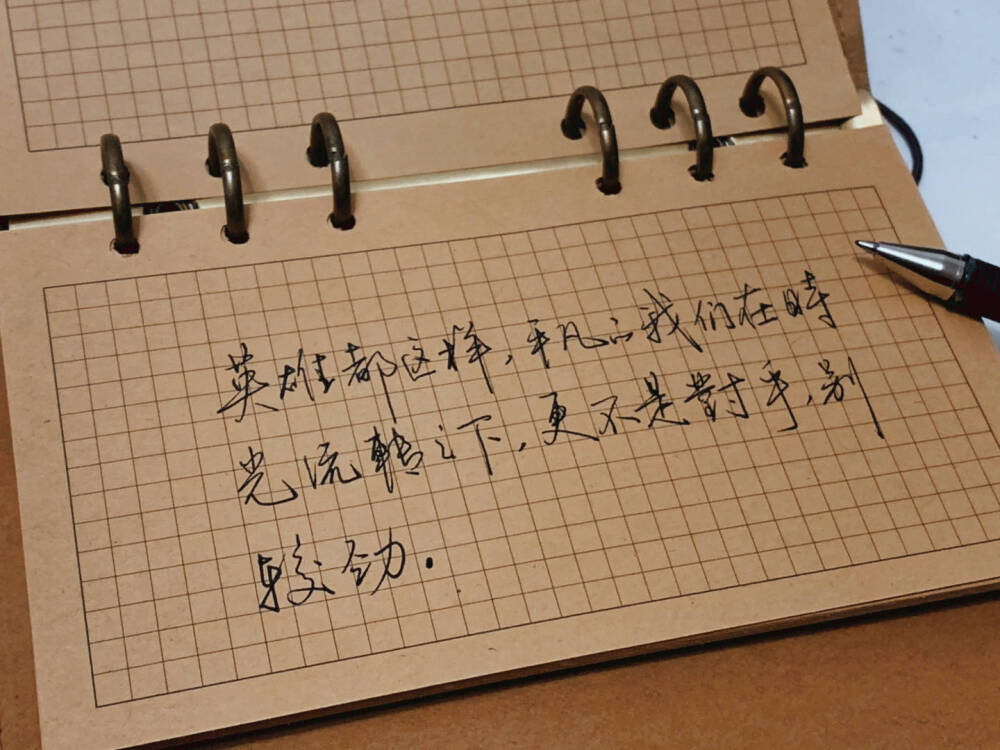 英雄都这样，平凡的我们在时
光流轉之下，更不是對手，别
较劲.